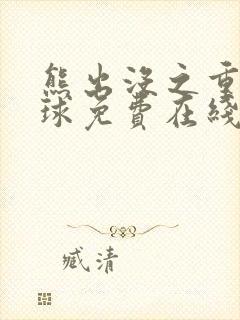 熊出没之重
球免費在綫
臧清